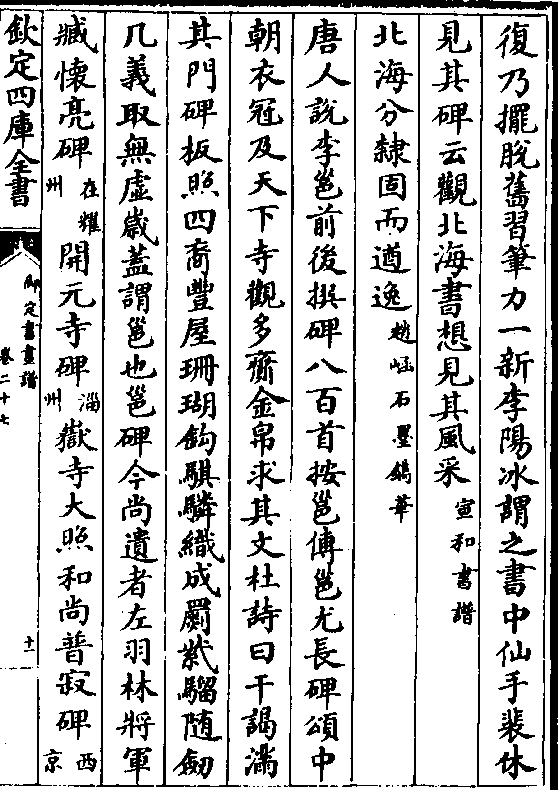 復乃擺脫舊習筆力一新李陽冰謂之書中仙手裴休
見其碑云觀北海書想見其風采宣和書譜
北海分隸固而遒逸趙崡石墨鐫華
唐人說李邕前後撰碑八百首按邕傳邕尤長碑頌中
朝衣冠及天下寺觀多齎金帛求其文杜詩曰干謁滿
其門碑板照四裔豐屋珊瑚鈎騏驎織成罽紫騮隨劒
几義取無虛歲蓋謂邕也邕碑今尚遺者左羽林將軍
臧懷亮碑在耀州開元寺碑淄州嶽寺大照和尚普寂碑西京
欽定四庫全書
御定書畫譜
卷二十七
十一